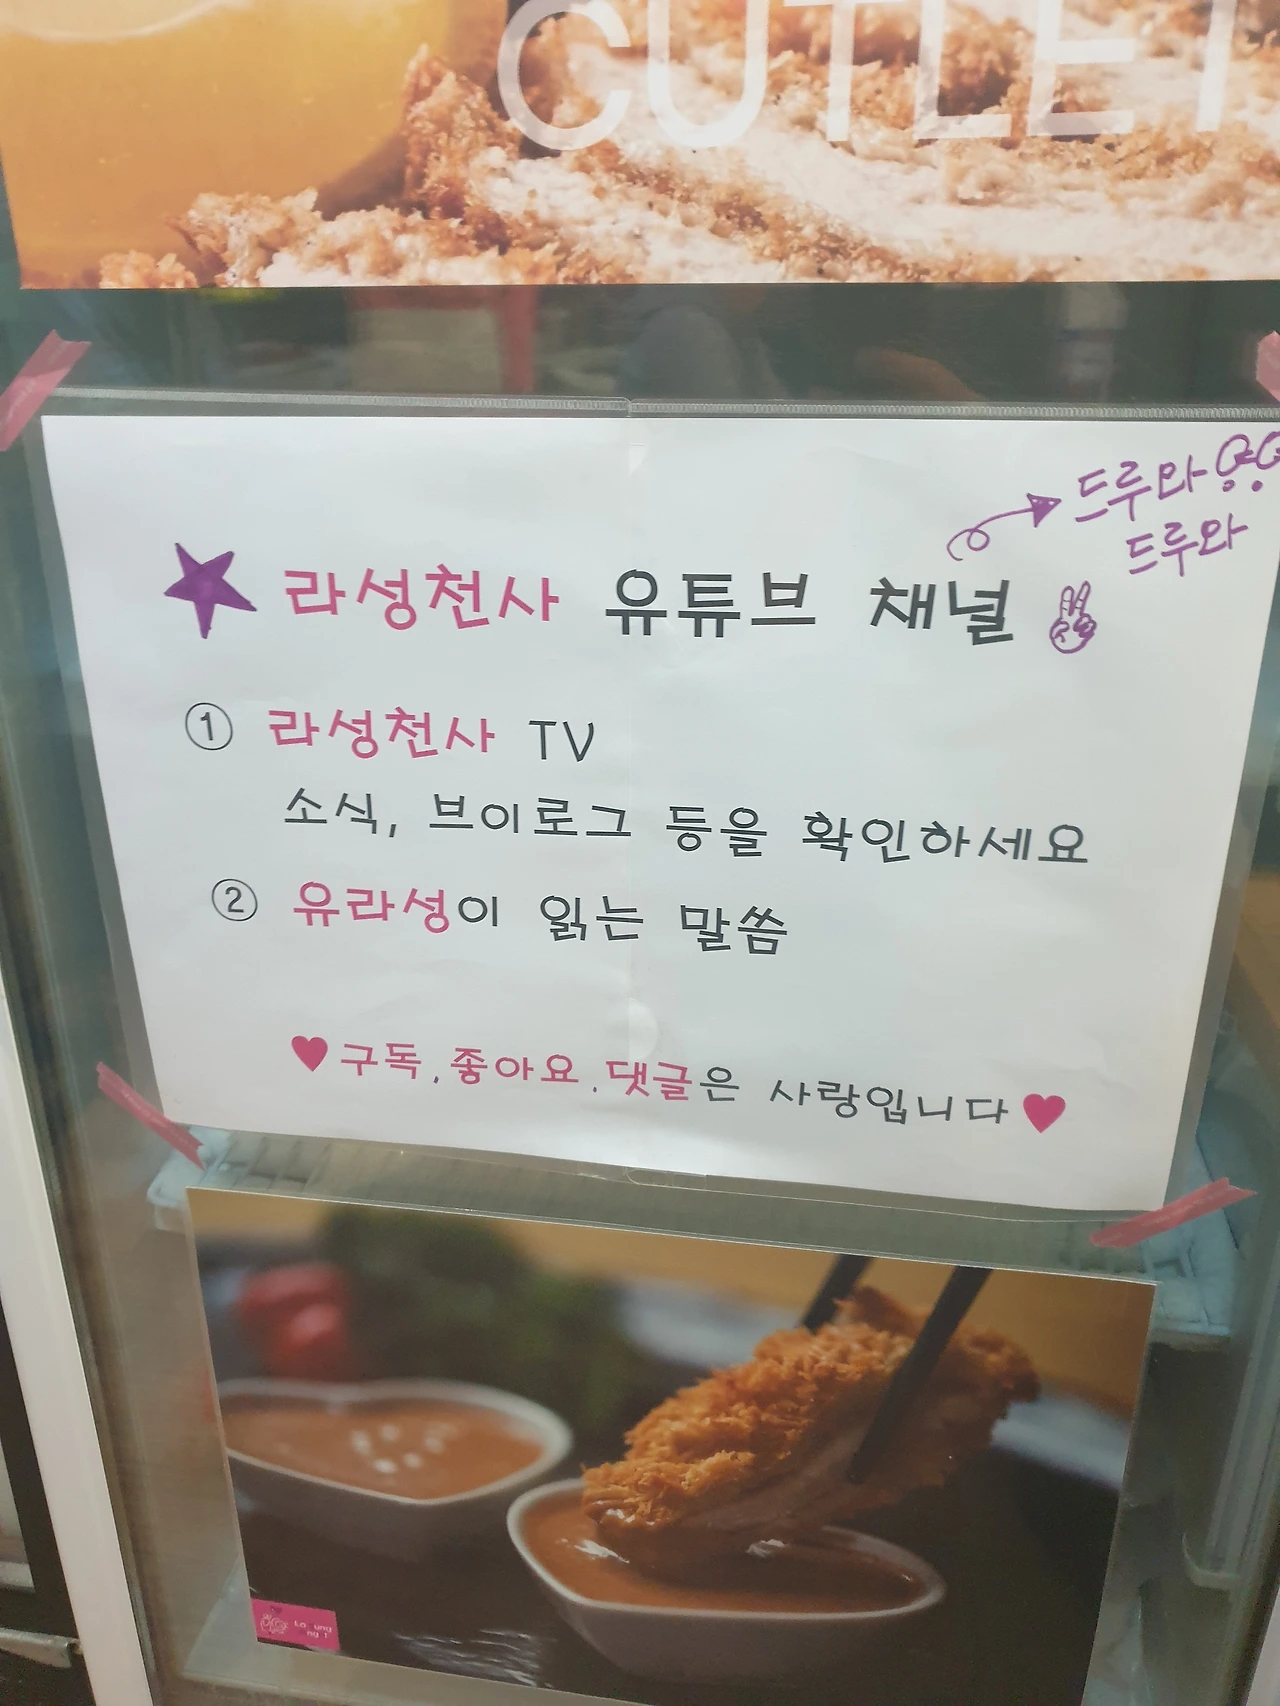 CUTLET
드루와
드루와
★ 라성천사 유튜브 채널
① 라성천사 TV
소식, 브이로그 등을 확인하세요
② 유라성이 읽는 말씀
♥구독.좋아요.댓글은 사랑입니다♥